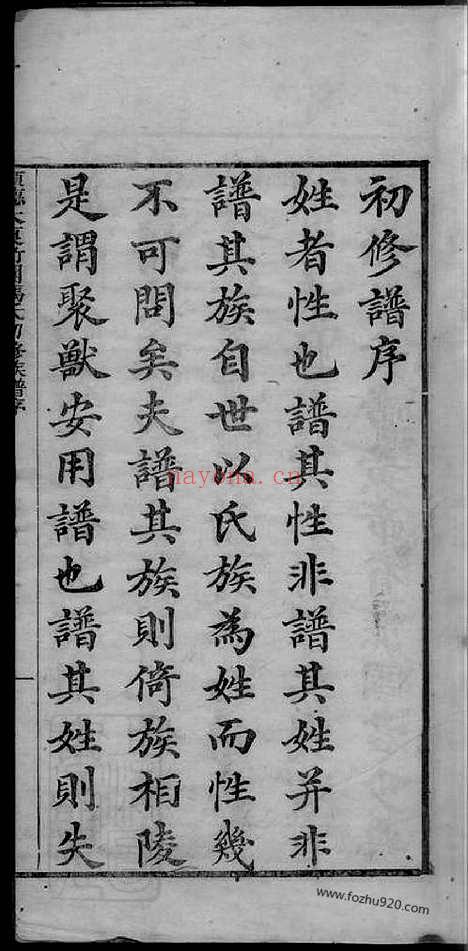 初修譜序
姓者性也譜其性非譜其姓并非
譜其族自世以氏族為姓而性幾
不可問矣夫譜其族則倚族相陵
是謂聚獸安用譜也譜其姓則失
nayona.cn
www.fozhu920.com